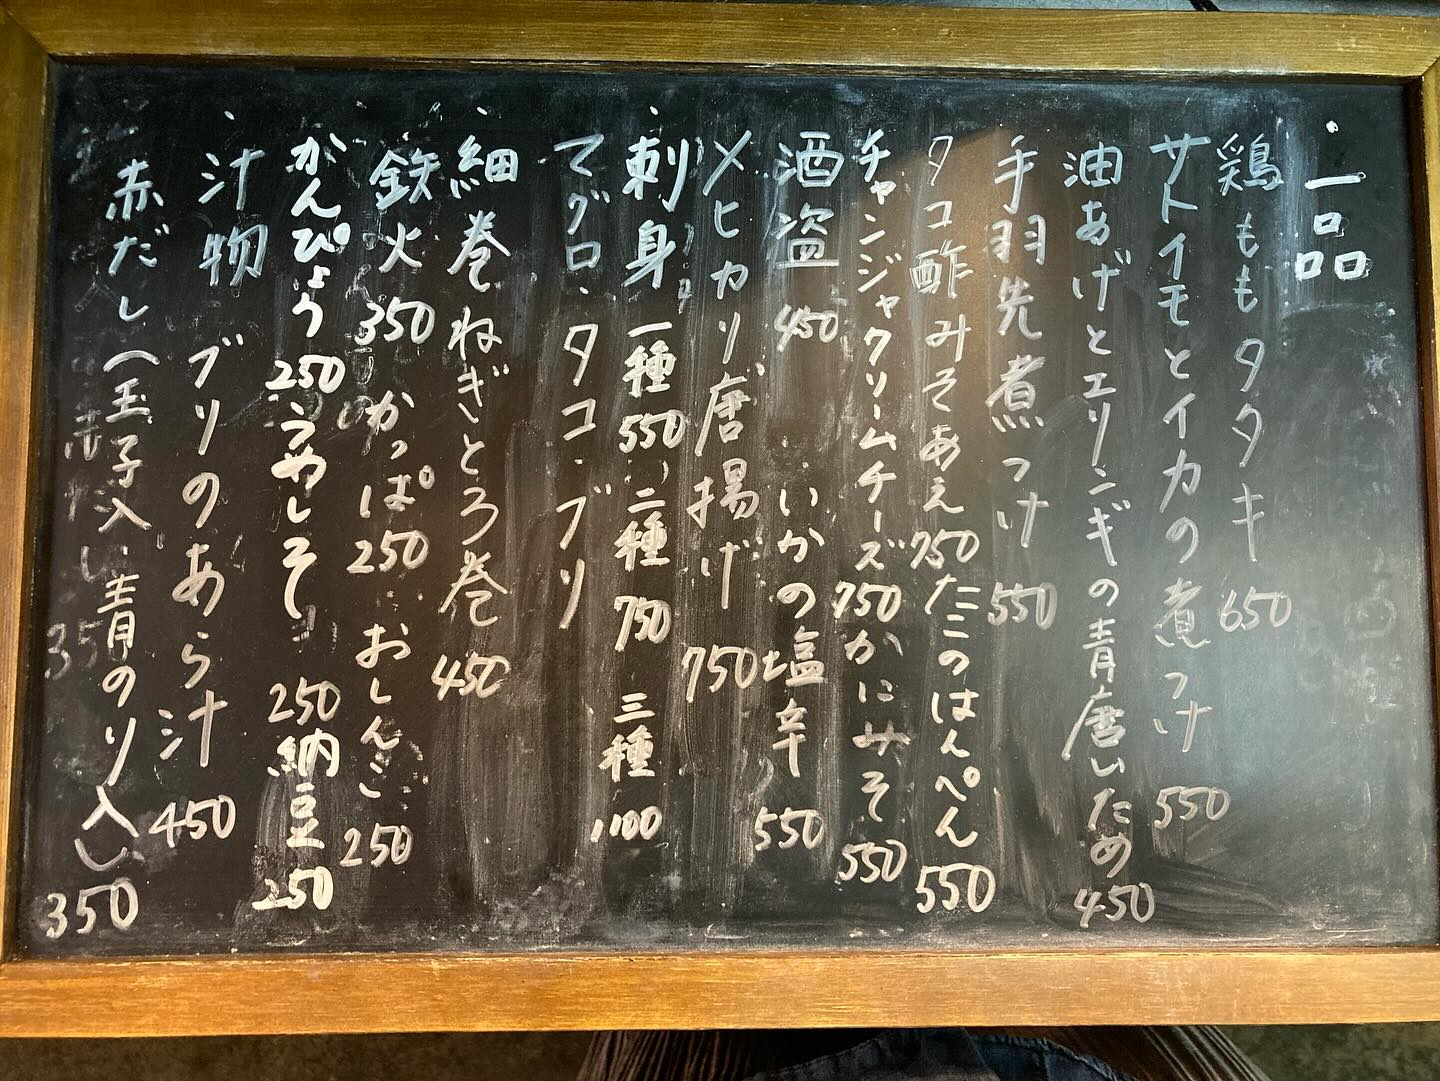 ・一品
鶏ももタタキ 650
サトイモとイカの煮つけ 550
油あげとエリンギの青唐いため 450
手羽先煮つけ 550
タコ酢みそあえ 750 たこのはんぺん 550
チャンジャクリームチーズ 750 かにみそ 550
酒盗 450 いかの塩辛 550
メヒカリ唐揚げ 750
・刺身 一種 550 二種 750 三種 1100
マグロ・タコ・ブリ
・細巻 ねぎとろ巻 450
鉄火 350 かっぱ 250 おしんこ 250
かんぴょう 250 うめしそ 250 納豆 250
・汁物 ブリのあら汁 450
赤だし(玉子入り 青のり入り) 350